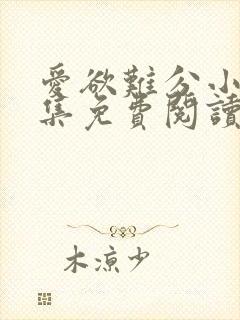 愛欲難分小
集免費閱讀
木涼少